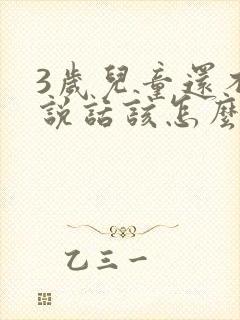 3歲兒童還不
說話該怎麼
乙三一